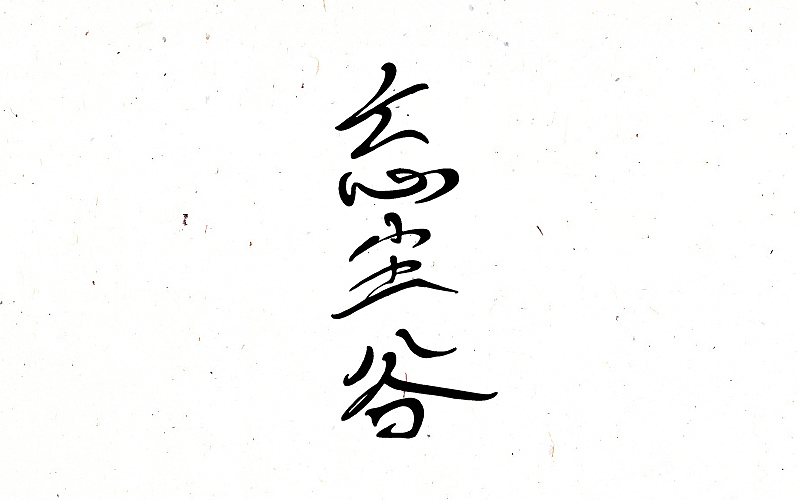 忘尘谷